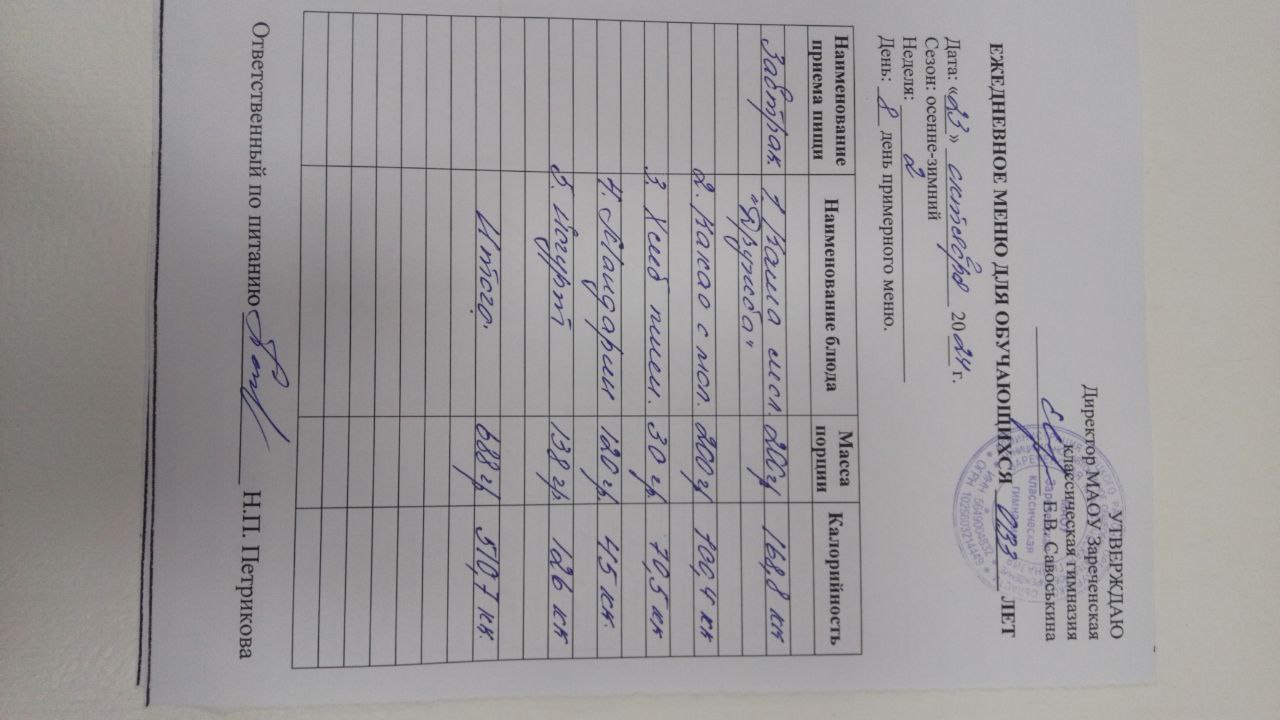 УТВЕРЖДАЮ
Директор МАОУ Зареченская
классическая гимназия
Е.В. Савоськина
ЕЖЕДНЕВНОЕ МЕНЮ ДЛЯ ОБУЧАЮЩИХСЯ ОВЗ ЛЕТ
Дата: «23» октября 2024 г.
Сезон: осенне-зимний
Неделя: 2
День: 8 день примерного меню.
Наименование приема пищи Наименование блюда Масса порции Калорийность
Завтрак 1. Каша мол. 200гр 168,8 кк
"Дружба"
2. Какао с мол. 200гр 100,4 кк
3. Хлеб пшен. 30 гр 70,5 кк
4. Мандарин 120 гр 45 кк.
5. Йогурт 138 гр 126 кк
Итого. 688 гр 510,7 кк.
Ответственный по питанию Н.П. Петрикова